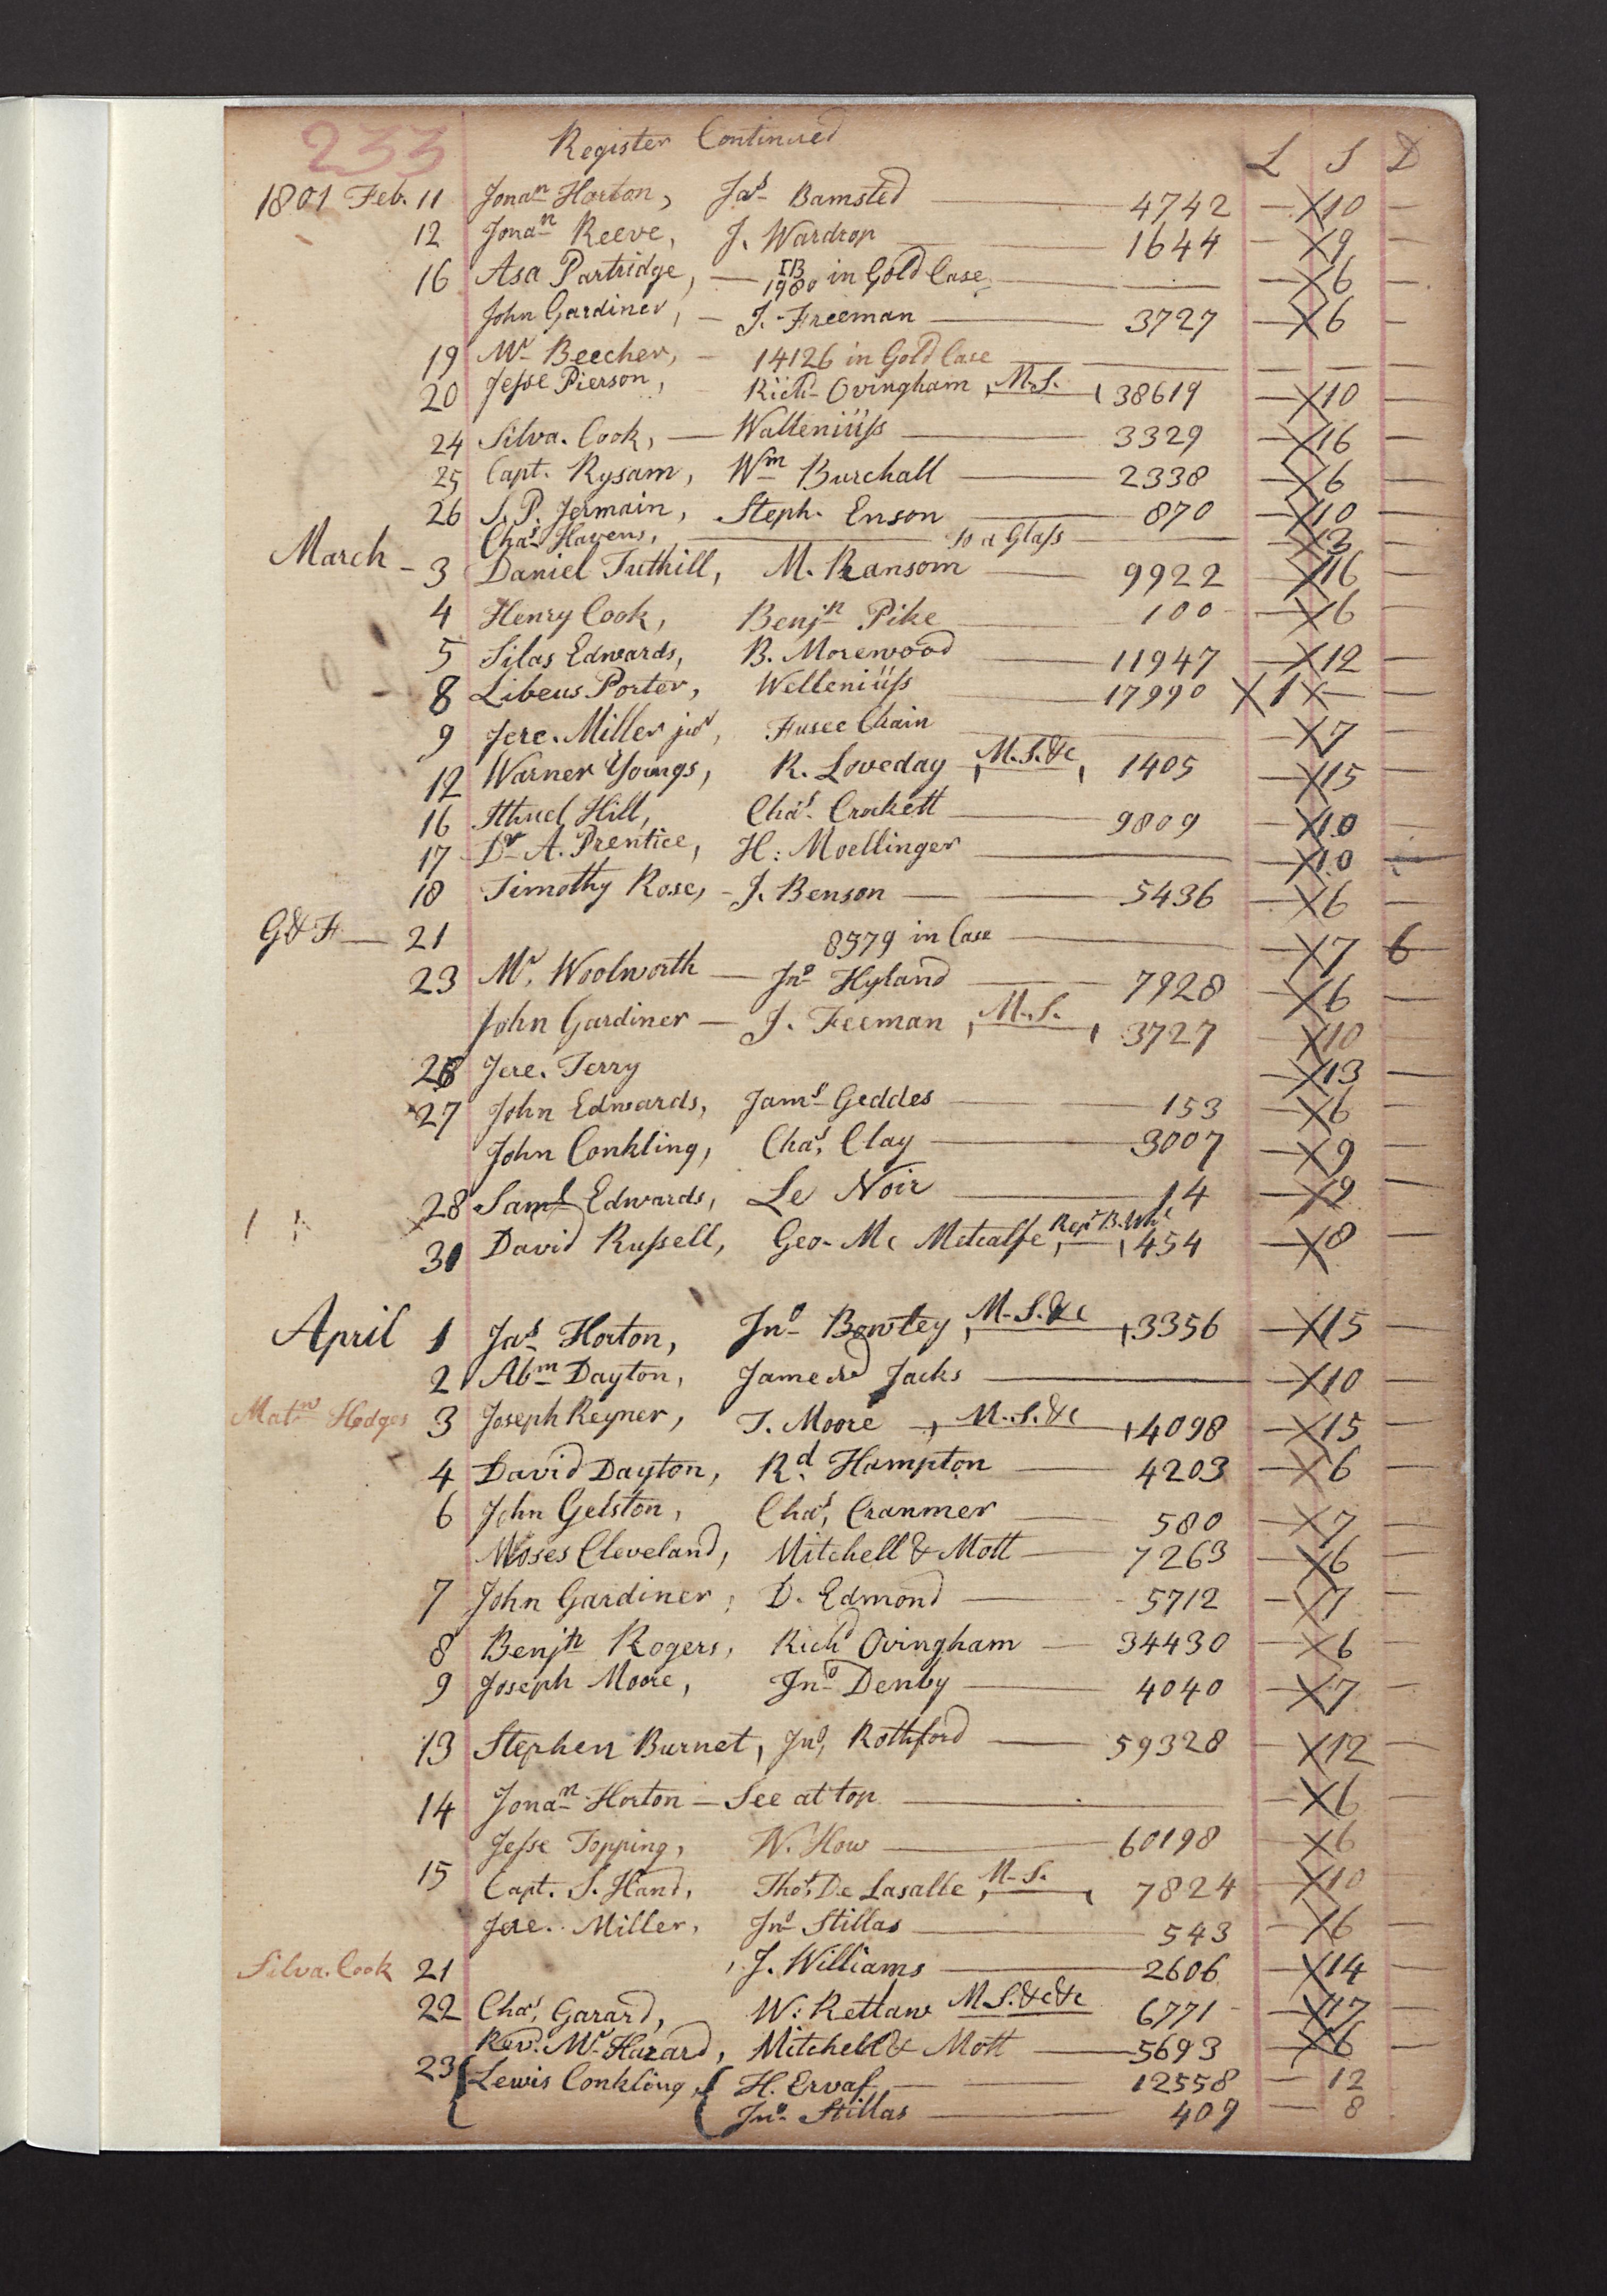 233 Register Continued L S D
1801 Feb. 11 Jonan Horton, Jas Bamsted — 4742 — X10 —
12 Jonan Reeve, J. Wardrop — 1644 — X9 —
16 Asa Partridge, — IB 1980 in Gold Case — X6 —
John Gardiner, — J. Freeman — 3727 — X6 —
19 Mr Beecher, — 14126 in Gold Case — — — —
20 Jesse Pierson, Richd Ovingham, M.S. 38619 — X10 —
24 Silva. Cook, — Walleniüss — 3329 — X16 —
25 Capt. Rysam, Wm Burchall — 2338 — X6 —
26 S. P. Jermain, Steph. Enson — 870 — X10 —
Chas Havens, — To a Glass — X3 —
March - 3 Daniel Tuthill, M. Ransom — 9922 — X16 —
4 Henry Cook, Benjn Pike — 100 — X6 —
5 Silas Edwards, B. Morewood — 11947 — X12 —
8 Libeus Porter, Welleniüss — 17990 X 1 X —
9 Jere. Miller jur, Fusee Chain — X7 —
12 Warner Youngs, R. Loveday, M.S. &c, 1405 — X15 —
16 Ithuel Hill, Chas. Crockett — 9809 — X10 —
17 Dr A. Prentice, H: Moellinger — X10 —
18 Timothy Rose, - J. Benson — 5436 — X6 —
G & F — 21 8579 in Case — X7 6
23 Mr. Woolworth — Jno Hyland — 7928 — X6 —
John Gardiner — J. Feeman, M.S., 3727 — X10 —
26 Jere. Terry — X13 —
27 John Edwards, Jams Geddes — 153 — X6 —
John Conkling, Chas. Clay — 3007 — X9 —
28 Saml Edwards, Le Noir — 14 — X9 —
31 David Russell, Geo. Mc Metcalfe, 454 — X8 —
April 1 Jas Horton, Jno Bowley, M.S. &c, 3356 — X15 —
2 Abm Dayton, James Jacks — X10 —
Matw Hodges 3 Joseph Reyner, T. Moore, M.S. &c, 4098 — X15 —
4 David Dayton, Rd. Hampton — 4203 — X6 —
6 John Gelston, Chas, Cranmer — 580 — X7 —
Moses Cleveland, Mitchell & Mott — 7263 — X6 —
7 John Gardiner, D. Edmond — 5712 — X7 —
8 Benjn Rogers, Richd Ovingham — 34430 — X6 —
9 Joseph Moore, Jno Denby — 4040 — X7 —
13 Stephen Burnet, Jno, Rothford — 59328 — X12 —
14 Jonan Horton — See at top — X6 —
Jesse Topping, W. How — 60198 — X6 —
15 Capt. S. Hand, Thos, De Lasalle, M.S., 7824 — X10 —
Jere. Miller, Jno Stillas — 543 — X6 —
Silva. Cook 21 , J. Williams — 2606 — X14 —
22 Chas, Garard, W: Rettaw M.S. &c &c 6771 — X17 —
Revd. Mr Hazard, Mitchell & Mott — 5693 — X6 —
23 { Lewis Conkling, { H. Ervaf — 12558 — 12 —
Jno Stillas — 409 — 8 —